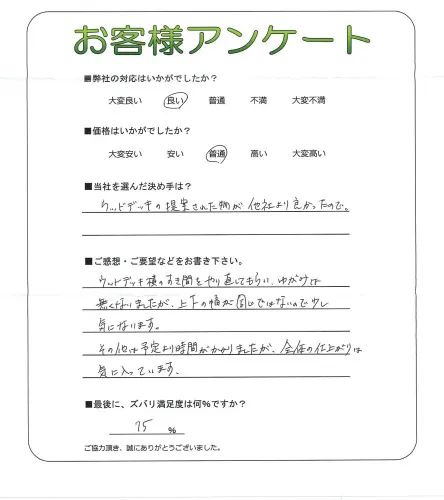 お客様アンケート
■弊社の対応はいかがでしたか？
大変良い 良い 普通 不満 大変不満
■価格はいかがでしたか？
大変安い 安い 普通 高い 大変高い
■当社を選んだ決め手は？
ウッドデッキの提案された物が他社より良かったので。
■ご感想・ご要望などをお書き下さい。
ウッドデッキ横のすき間をやり直してもらい、ゆがみは
無くなりましたが、上下の幅が同じではないので少し
気になります。
その他は予定より時間がかかりましたが、全体の仕上がりは
気に入っています。
■最後に、ズバリ満足度は何％ですか？
75 ％
ご協力頂き、誠にありがとうございました。